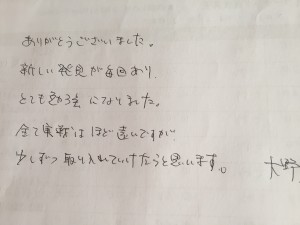 ありがとうございました。
新しい発見が毎回あり、
とても勉強になりました。
全て実戦はほど遠いですが
少しずつ取り入れていけたらと思います。
大野